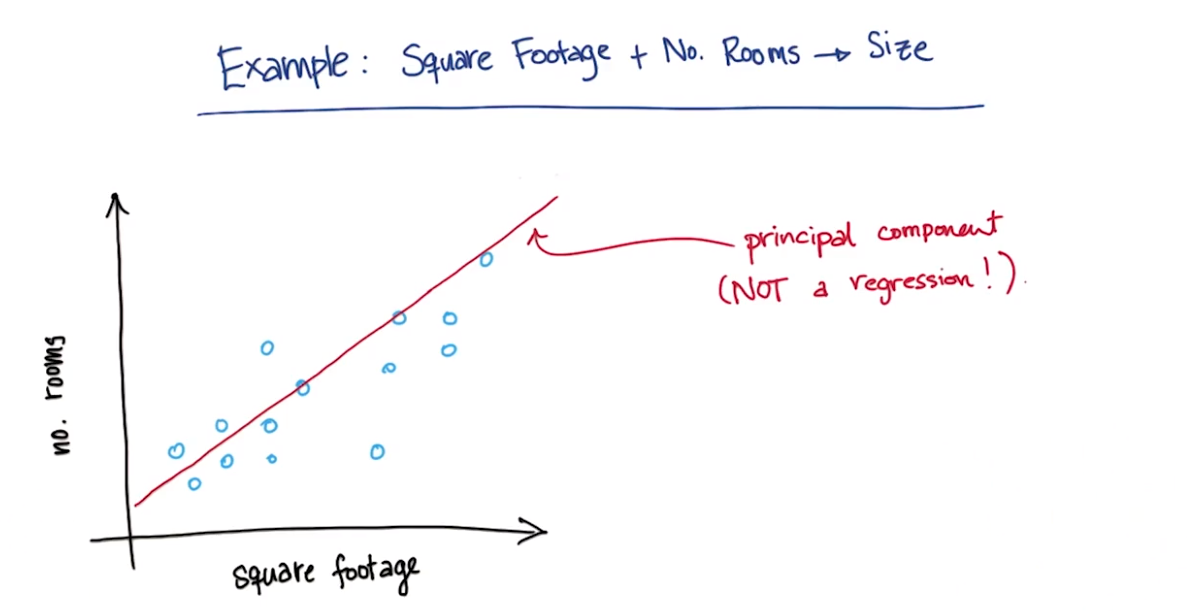 Example: Square Footage + No. Rooms → Size
principal component
(NOT a regression!).
no. rooms
square footage